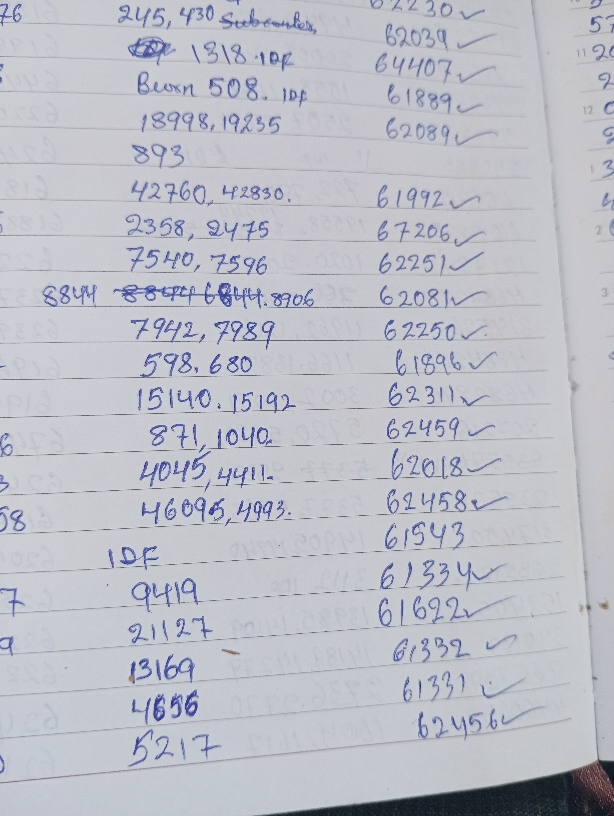 76 245, 430 Subcenter, 62230 ✓
1318. IDF 62039 ✓
508. IDF 64407 ✓
18998, 19235 61889 ✓
893 62089 ✓
42760, 42830. 61992 ✓
2358, 2475 67206 ✓
7540, 7596 62251 ✓
8844 8844 6844. 8906 62081 ✓
7942, 7989 62250 ✓
598. 680 61896 ✓
15140. 15192 62311 ✓
871, 1040 62459 ✓
4045, 4411. 62018 ✓
58 46095, 4993. 62458 ✓
IDF 61543
7 9419 61334 ✓
9 21127 61622 ✓
13169 61332 ✓
4656 61331 ✓
5217 62456 ✓